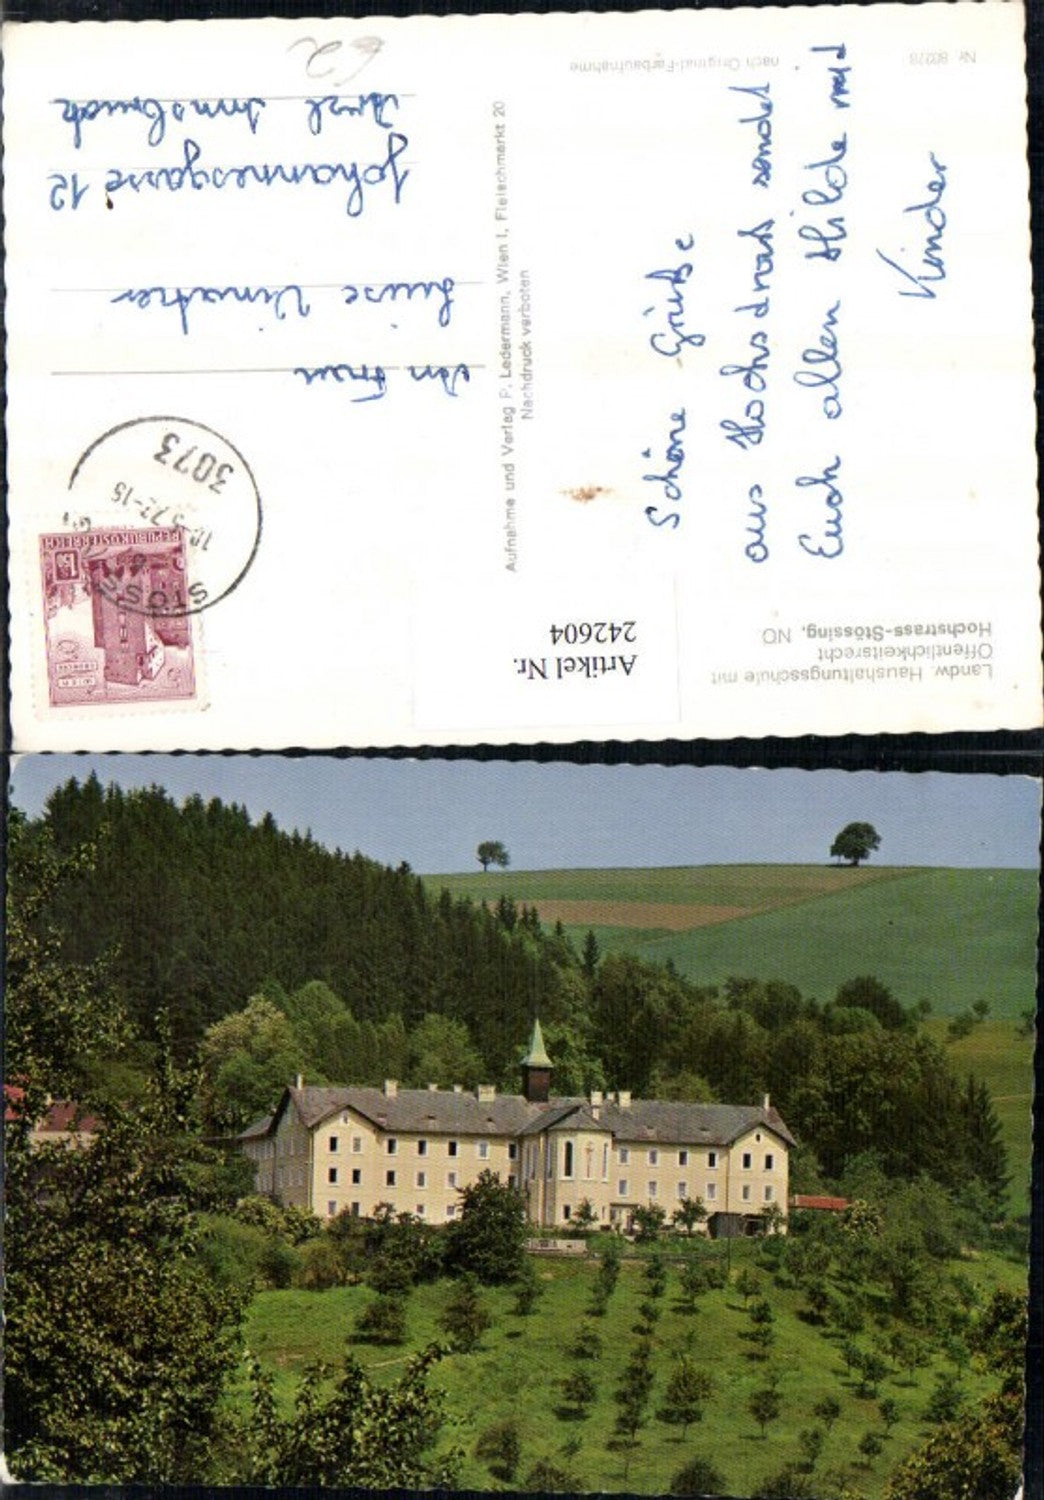 Landw. Haushaltungsschule mit
Öffentlichkeitsrecht
Hochstrass-Stössing, NÖ
Artikel Nr.
242604
Schöne Grüße
aus Hochstraß sendet
Euch allen Hilde und
Kinder
Nr. 80278
nach Original-Farbaufnahme
Aufnahme und Verlag P. Ledermann, Wien I, Fleischmarkt 20
Nachdruck verboten
REPUBLIK ÖSTERREICH
1.50
3073
-5.72-15
STÖSS
An Frau
Luise Vinatzer
Johannesgasse 12
Arzl Innsbruck
62